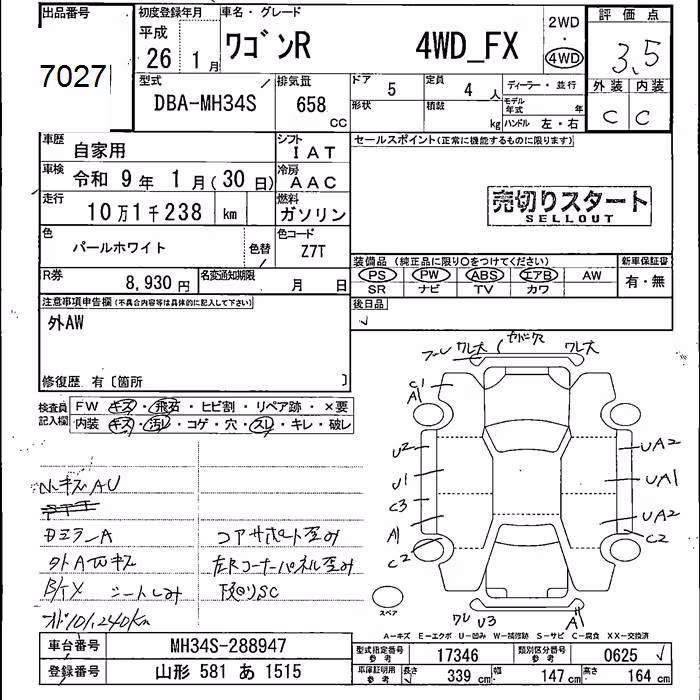 出品番号
7027
初度登録年月
平成
26 1月
車名・グレード
ワゴンR 4WD_FX
2WD
・
4WD
評価点
3.5
外装 内装
C C
型式
DBA-MH34S
排気量
658
CC
ドア
5
定員
4 人
形状
積載
kg
ディーラー・並行
モデル
年式 年
ハンドル 左・右
車歴
自家用
シフト
IAT
車検
令和 9年 1月(30日)
冷房
AAC
走行
10万1千238 km
燃料
ガソリン
色
パールホワイト
色替
色コード
Z7T
R券
8,930円
名変通知期限
月 日
セールスポイント(正常に機能するものに限ります)
売切りスタート
SELLOUT
装備品 (純正品に限り〇をつけてください)
PS PW ABS エアB AW
SR ナビ TV カワ
新車保証書
有・無
後日品
注意事項申告欄(不具合内容等は具体的に記入して下さい)
外AW
修復歴 有〔箇所 〕
検査員
記入欄
FW キズ・飛石・ヒビ割・リペア跡・×要
内装 キズ・汚レ・コゲ・穴・スレ・キレ・破レ
ハンキズAU
ミラーA
外AWキズ
シートしみ
101,240km
コアサポート歪み
左Rコーナーパネル歪み
下回りSC
ワレ大
ワレ大
C1
A1
U2
U1
C3
A1
C2
UA2
UA1
UA2
C2
ワレ U3
A1
スペア
A-キズ E-エクボ U-凹み W-補修跡 S-サビ C-腐食 XX-交換済
車台番号
MH34S-288947
登録番号
山形 581 あ 1515
型式指定番号
参考
17346
類別区分番号
参考
0625
車庫証明用
参考
長さ 339 cm 幅 147 cm 高さ 164 cm